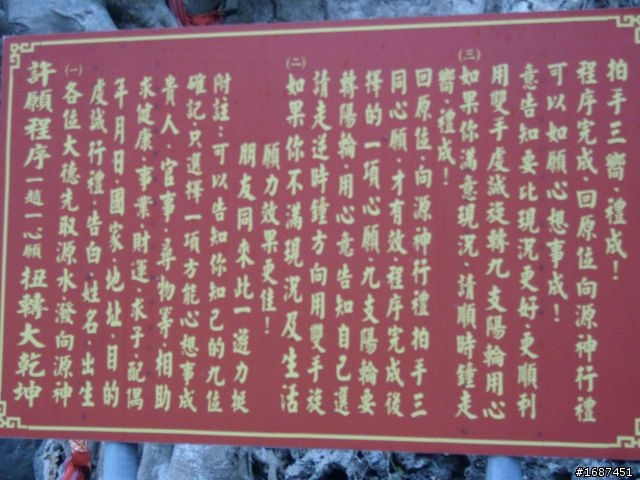 許願程序 一趟一心願 扭轉大乾坤
(一)各位大德先取源水·潑向源神
虔誠行禮·告白·姓名·出生
年月日國家·地址·目的
求健康·事業·財運·求子·配偶
貴人·官事·尋物等·相助
確記只選擇一項方能心想事成
附註:可以告知你知己的九位
朋友同來此一遊力挺
願力效果更佳!
(二)如果你不滿現況及生活
請走逆時鐘方向用雙手旋
轉陽輪·用心意告知自己選
擇的一項心願·九支陽輪要
同心願·才有效·程序完成後
回原位·向源神行禮 拍手三
嚮·禮成!
(三)如果你滿意現況·請順時鐘走
用雙手虔誠旋轉九支陽輪用心
意告知要比現況更好·更順利
可以如願心想事成!
程序完成·回原位向源神行禮
拍手三嚮·禮成!
#1687451